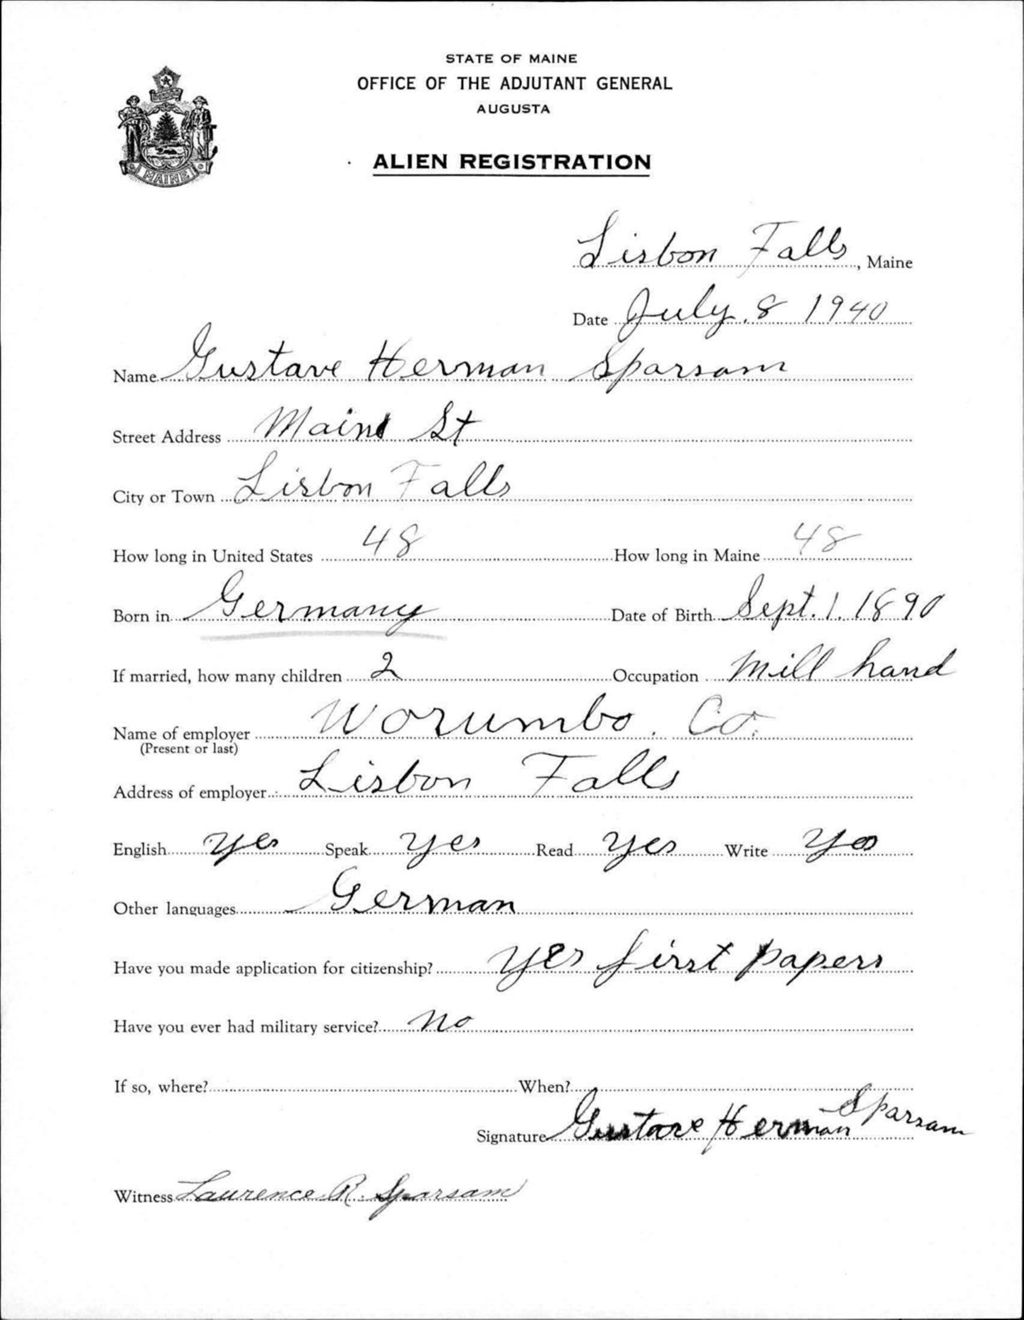 STATE OF MAINE
OFFICE OF THE ADJUTANT GENERAL
AUGUSTA
ALIEN REGISTRATION
MAINE
Lisbon Falls, Maine
Date July. 8 1940
Name Gustave Herman Sparsam
Street Address Main St
City or Town Lisbon Falls
How long in United States 48 How long in Maine 48
Born in Germany Date of Birth Sept. 1, 1890
If married, how many children 2 Occupation Mill hand
Name of employer Worumbo. Co.
(Present or last)
Address of employer Lisbon Falls
English yes Speak yes Read yes Write yes
Other languages German
Have you made application for citizenship? yes first papers
Have you ever had military service? no
If so, where? When?
Signature Gustave Herman Sparsam
Witness Laurence R. Sparsam